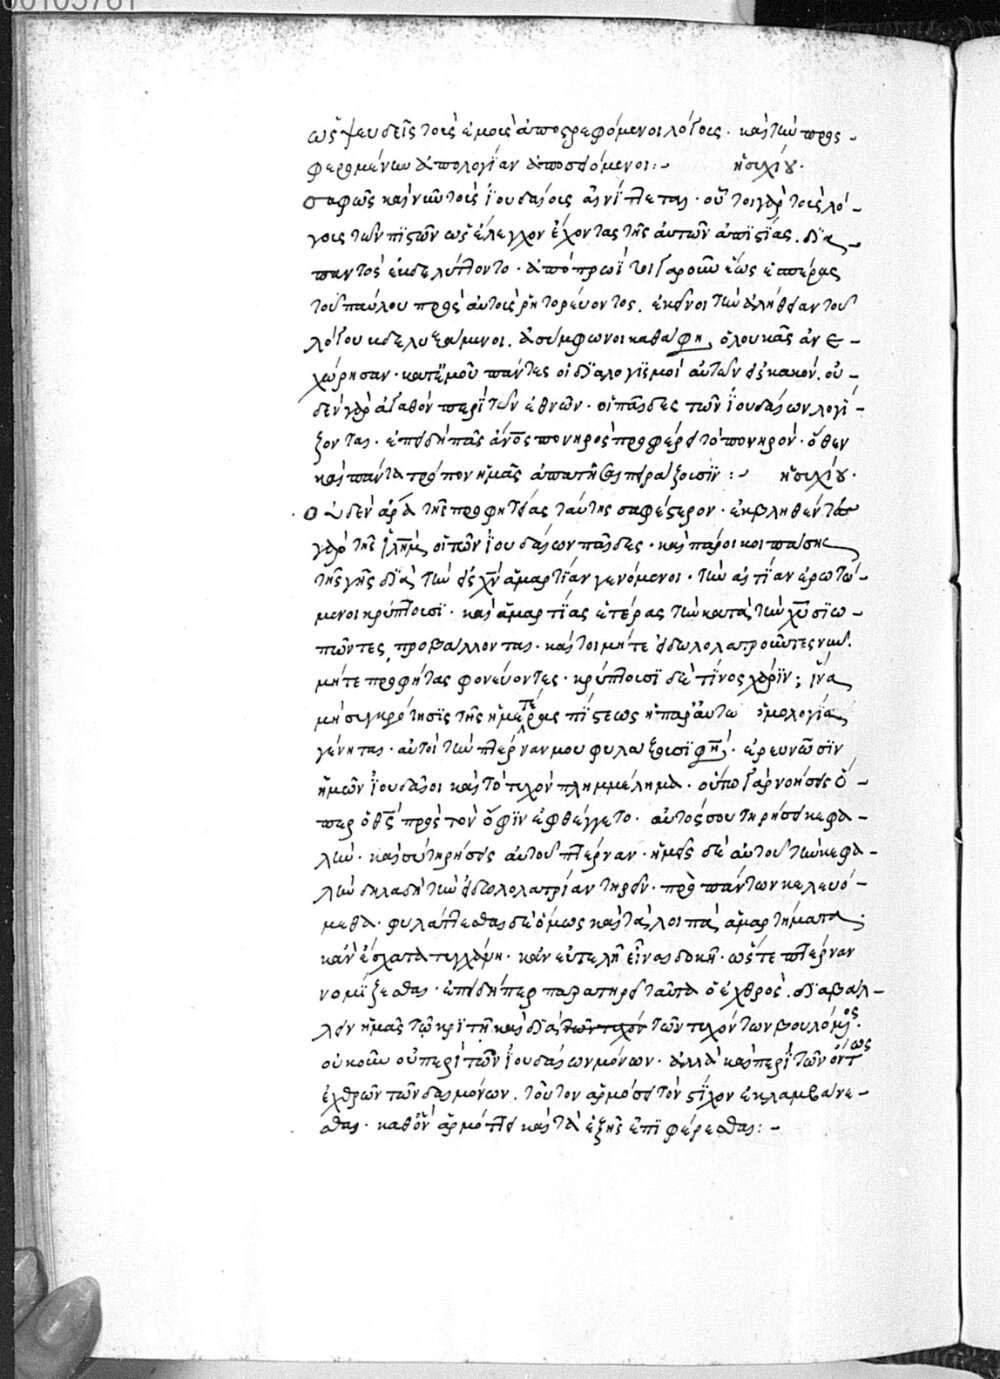 00105761
ὡς ψευδεῖς τοῖς ἐμοῖς ἀποστρεφόμενοι λόγοις · καὶ τὴν προσ-
φερομένην ἀπολογίαν ἀποσειόμενοι :- ἡσυχίου ·
σαφῶς καὶ νῦν τοῖς ἰουδαίοις αἰνίττεται · οὗτοι γὰρ τοὺς λό-
γους τῶν πιστῶν ὡς ἔλεγχον ἔχοντας τῆς αὐτῶν ἀπιστίας . δια-
παντὸς ἐβδελύττοντο · ἀπὸ πρωῒ γὰρ οὖν ἕως ἑσπέρας
τοῦ παύλου πρὸς αὐτοὺς ῥητορεύοντος . ἐκεῖνοι τὴν ἀλήθειαν τοῦ
λόγου βδελυξάμενοι . ἀσύμφωνοι καθά φη, ὁ λουκᾶς ἀνε-
χώρησαν · κατ' ἐμοῦ πάντες οἱ διαλογισμοὶ αὐτῶν εἰς κακόν . οὐ-
δὲν γὰρ ἀγαθὸν περὶ τῶν ἐθνῶν · οἱ παῖδες τῶν ἰουδαίων λογί-
ζονται · ἐπειδὴ πᾶς ἄνος πονηρὸς προφέρει τὸ πονηρόν · ὅθεν
καὶ πάντα τρόπον ἡμᾶς ἀπατῆσαι πειράζουσιν :- ἡσυχίου ·
οὐδὲν ἄρα τῆς προφητείας ταύτης σαφέστερον · ἐκβληθέντες
γὰρ τῆς ἱλημ οἱ τῶν ἰουδαίων παῖδες · καὶ πάροικοι πάσης
τῆς γῆς διὰ τὴν εἰς χν ἁμαρτίαν γενόμενοι · τὴν αἰτίαν ἐρωτώ-
μενοι κρύπτουσι · καὶ ἁμαρτίας ἑτέρας τὴν κατὰ τὴν χυ σιω-
πῶντες, προβάλλονται · καίτοι μήτε εἰδωλολατροῦντες νῦν .
μήτε προφήτας φονεύοντες · κρύπτουσι δὲ τίνος χάριν ; ἵνα
μὴ συγκρότησις τῆς ἡμετέρας πίστεως ἡ παρ' αὐτῶ ὁμολογία
γένηται · αὐτοὶ τὴν πτέρναν μου φυλάξουσι φη · ἐρευνῶσιν
ἡμῶν ἰουδαῖοι καὶ τὸ τυχὸν πλημμέλημα · οὕπω γὰρ νοήσεις ὅ-
περ ὁ θς πρὸς τὸν ὄφιν ἐφθέγγετο · αὐτός σου τηρήσει κεφα-
λὴν · καὶ σὺ τηρήσεις αὐτοῦ πτέρναν · ἡμεῖς δὲ αὐτοῦ τὴν κεφα-
λὴν δηλαδὴ τὴν εἰδωλολατρίαν τηρεῖν · πρὸ πάντων κελευό-
μεθα · φυλάττεσθαι δὲ ὅμως καὶ τὰ λοιπὰ ἁμαρτήματα ·
κἂν ἔσχατα τυγχάνῃ · κἂν εὐτελῆ εἶναι δοκῇ · ὥστε πτέρναν
νομίζεσθαι · ἐπειδήπερ παρατηρεῖ ταῦτα ὁ ἐχθρὸς . διαβάλ-
λειν ἡμᾶς τῷ κριτῇ καὶ διὰ τῶν τυχόν τῶν τυχόντων βουλόμενος ·
οὐκοῦν οὐ περὶ τῶν ἰουδαίων μόνων · ἀλλὰ καὶ περὶ τῶν ὄντως
ἐχθρῶν τῶν δαιμόνων . τοῦτον ἁρμόσει τὸν στίχον ἐκλαμβάνε-
σθαι · καθ' ὃν ἁρμόττει καὶ τὰ ἑξῆς ἐπιφέρεσθαι :-